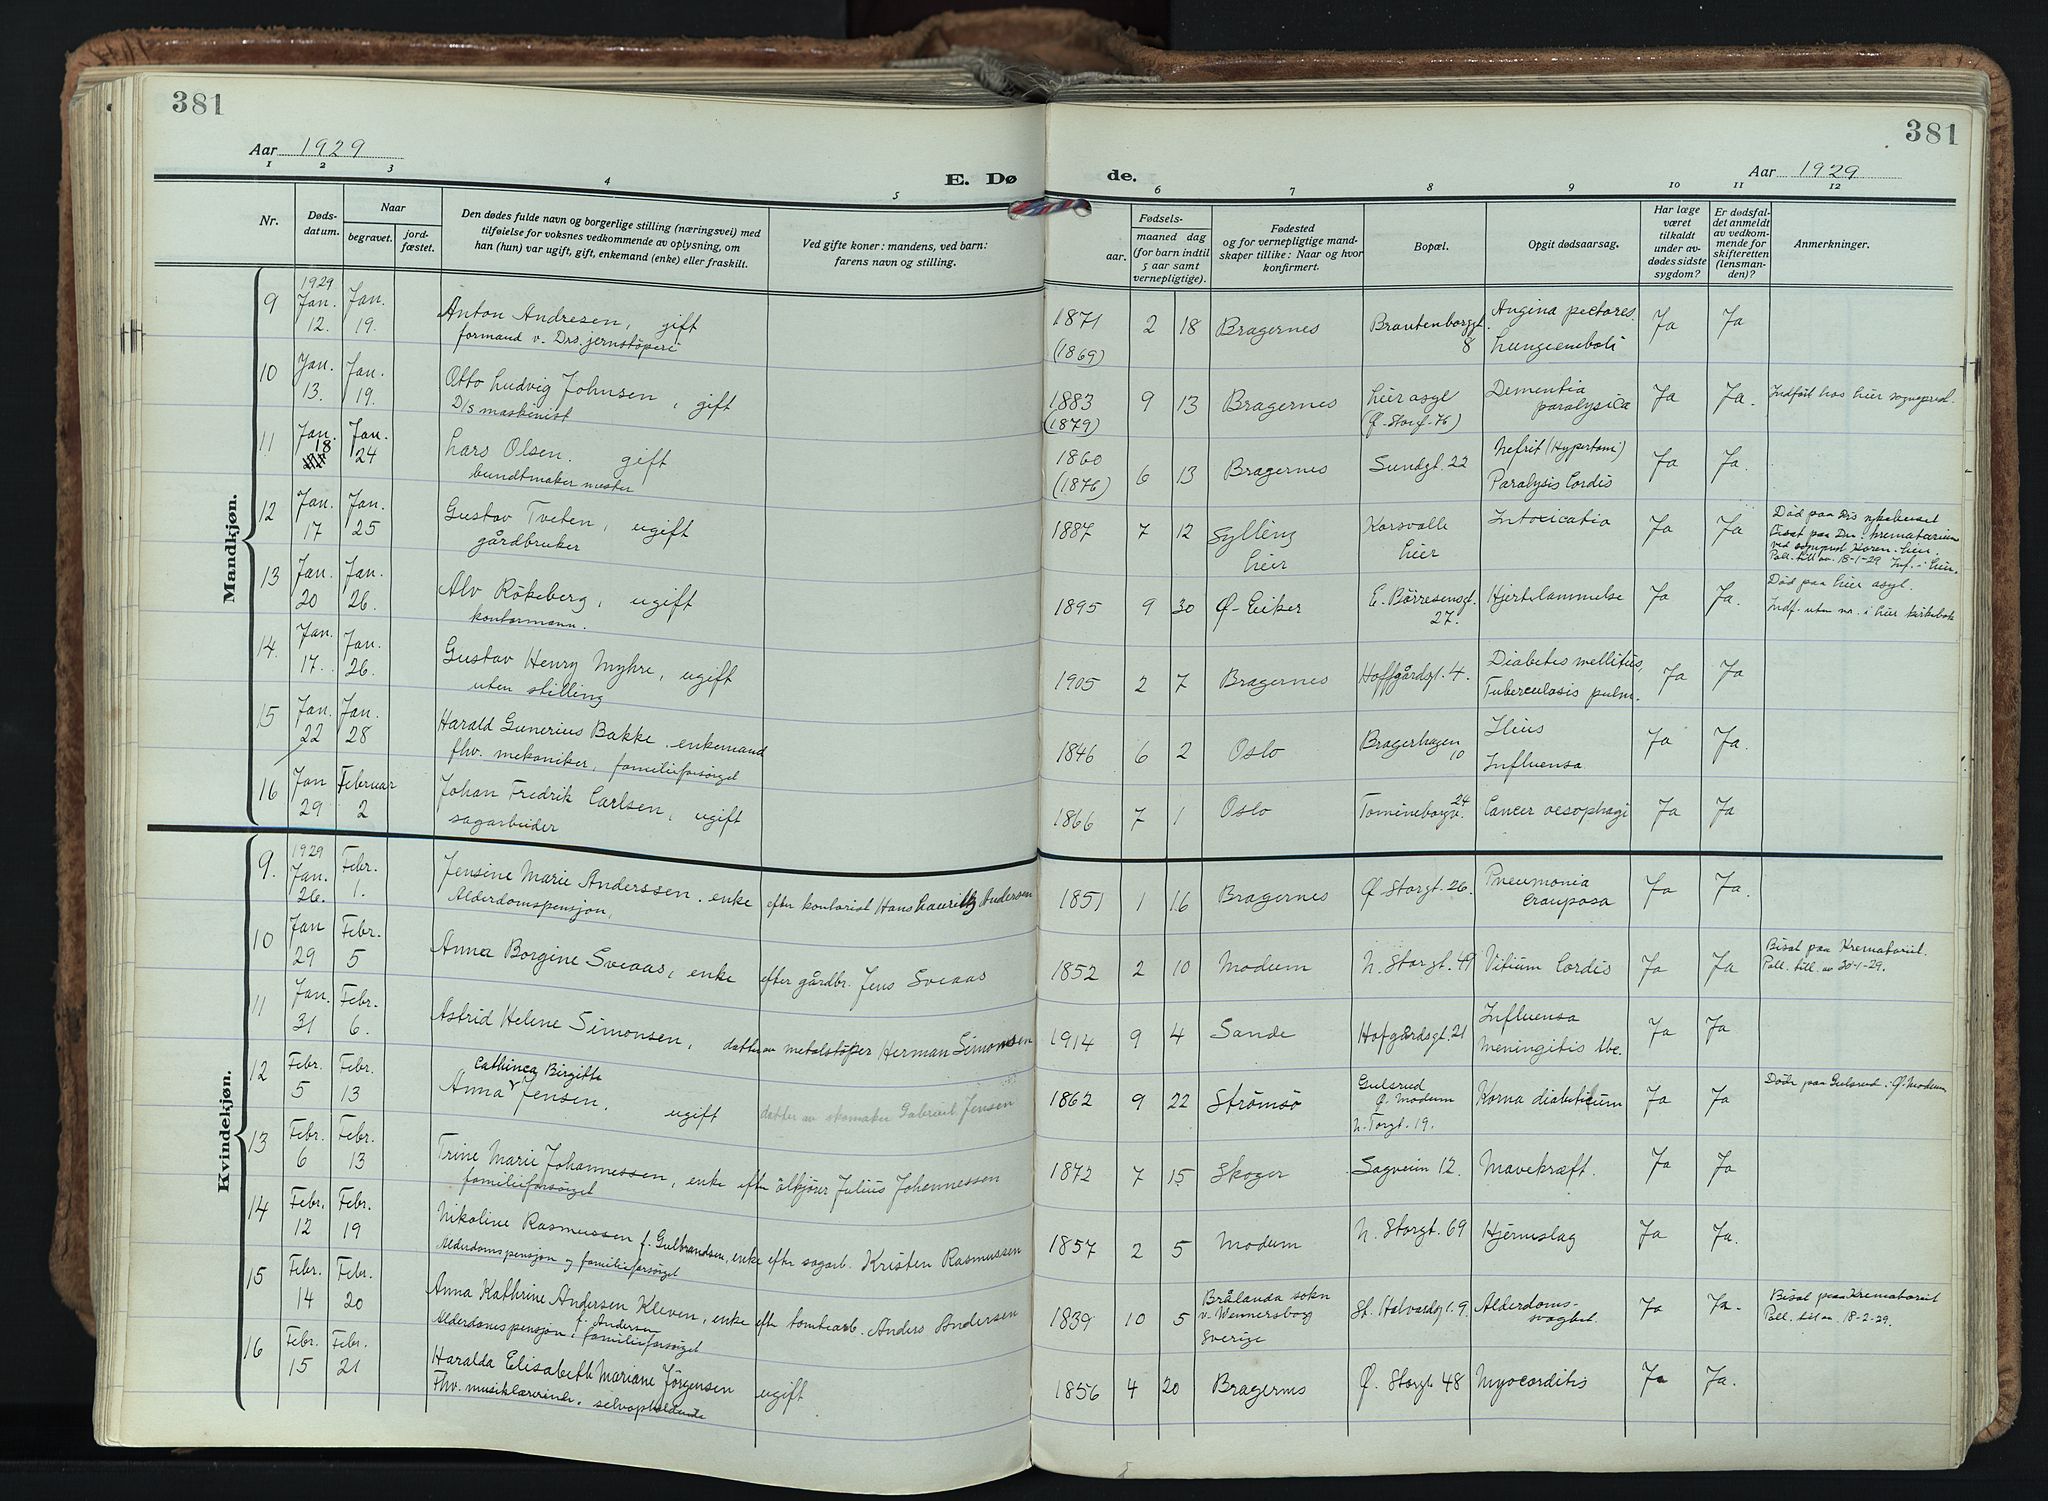 381
381
Aar 1929
E. Dø de.
Aar 1929
1 2 3 4 5 6 7 8 9 10 11 12
Nr.
Døds-datum.
Naar
begravet.
jord-fæstet.
Den dødes fulde navn og borgerlige stilling (næringsvei) med
tilføielse for voksnes vedkommende av oplysning, om
han (hun) var ugift, gift, enkemand (enke) eller fraskilt.
Ved gifte koner: mandens, ved barn:
farens navn og stilling.
Fødsels-
aar. maaned dag
(for barn indtil
5 aar samt
vernepligtige).
Fødested
og for vernepligtige mand-
skaper tillike: Naar og hvor
konfirmert.
Bopæl.
Opgit dødsaarsag.
Har læge
været
tilkaldt
under av-
dødes sidste
sygdom?
Er dødsfal-
det anmeldt
av vedkom-
mende for
skifteretten
(lensman-
den)?
Anmerkninger.
Mandkjøn.
1929
9 Jan. 12. Jan. 19. Anton Andresen, gift 1871 2 18 Bragernes Brautenborggt. 8 Angina pectores. Ja Ja
formand v. Drs. jernstöperi (1869) Lungeemboli
10 Jan. 13. Jan. 19. Otto Ludvig Johnsen, gift 1883 9 13 Bragernes Lier asyl Dementia paralysica Ja Ja. Indført hos Lier sogneprest.
D/s maskinist (1879) (Ø. Storg. 76)
11 Jan. 18 Jan. 24 Lars Olsen. gift 1860 6 13 Bragernes Sundgt. 22 Nefrit (Hypertoni) Ja Ja.
bundtmaker mester (1876) Paralysis Cordis
12 Jan. 17 Jan. 25 Gustav Tveten, ugift 1887 7 12 Sylling Lier Korsvolle Lier Intoxicatio Ja Ja Død paa Drs sykehuset
gårdbruker Bisat paa Dr. krematorium
ved sogneprst Koren. Lier.
Poll. till av. 18-1-29 Inf. i Lier.
13 Jan. 20 Jan. 26. Alv Rökeberg, ugift 1895 9 30 Ø. Eiker E. Børresensgt. 27. Hjertelammelse Ja Ja. Død paa Lier asyl.
kontormann. Indf. uten nr. i Lier kirkebok
14. Jan. 17. Jan. 26. Gustav Henry Myhre, ugift 1905 2 7 Bragernes Hoffgårdsgt. 4. Diabetes mellitus, Ja Ja
uten stilling Tuberculosis pulm.
15 Jan. 22 Jan. 28 Harald Gunerius Bakke. enkemand 1846 6 2 Oslo Bragerhagen 10 Ilius Ja Ja.
fhv. mekaniker, familieforsörget Influensa
16 Jan 29 Februar 2 Johan Fredrik Carlsen, ugift 1866 7 1 Oslo Tomineborgv. 24 Cancer oesophagi Ja Ja
sagarbeider
Kvindekjøn.
1929
9. Jan. 26. Febr. 1. Jensine Marie Anderssen. enke efter kontorist Hans Lauritz Andersen 1851 1 16 Bragernes Ø Storgt. 26. Pneumonia Crouposa Ja Ja.
Alderdomspensjon,
10 Jan 29 Febr. 5 Anna Borgine Sveaas, enke efter gårdbr. Jens Sveaas 1852 2 10 Modum N. Storgt. 49 Vitium Cordis Ja Ja Bisat paa Krematoriet.
Poll. till. av 30-1-29.
11 Jan. 31 Febr. 6. Astrid Helene Simonsen, datter av metalstöper Herman Simonsen 1914 9 4 Sande Hofgårdsgt. 21 Influensa Ja Ja
Meningitis tbc.
12 Febr. 5 Febr. 13 Anna Cathinca Birgitte Jensen. ugift datter av skomaker Gabriel Jensen 1862 9 22 Strömsö Gulsrud Ø. Modum N. Torgt. 19. Koma diabeticum Ja Ja Døde paa Gulsrud i Ø. Modum
13 Febr. 6 Febr. 13 Trine Marie Johannessen, enke efter ölkjører Julius Johannessen 1872 7 15 Skoger Sagveien 12. Mavekræft. Ja Ja
familieforsörget
14 Febr. 12 Febr. 19 Nikoline Rasmussen f. Gulbrandsen, enke efter sagarb. Kristen Rasmussen 1857 2 5 Modum N. Storgt. 69 Hjerneslag Ja Ja.
Alderdomspensjon og familieforsörget
15 Febr. 14 Febr. 20 Anna Kathrine Andersen Kleven, enke efter tomtearb. Anders Andersen 1839 10 5 Brålanda sokn v. Wennersborg Sverige St. Halvardsgt. 9. Alderdoms-svaghet. Ja Ja. Bisat paa Krematoriet
f. Andersen Poll. till av. 18-2-29.
Alderdomspensjon, familieforsörget
16 Febr. 15 Febr. 21 Haralda Elisabeth Mariane Jørgensen ugift 1856 4 20 Bragernes Ø. Storgt 48 Myocorditis Ja Ja.
Fhv. musiklærerinde. selvopholdende